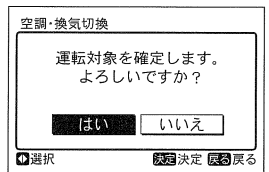 空調・換気切換
運転対象を確定します。
よろしいですか？
はい いいえ
選択 決定 決定 戻る 戻る